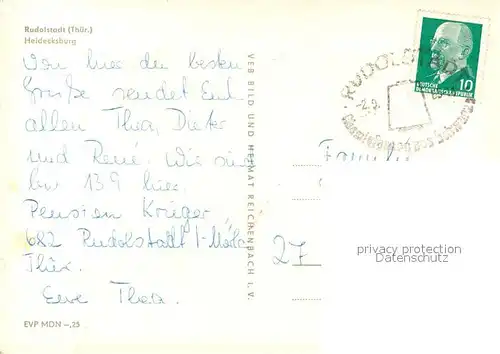 Rudolstadt (Thür.)
Heidecksburg
Von hier den besten
Grüße sendet Euch
allen Thea, Dieter
und René. Wir sind
bis 13.9 hier.
Pension Krüger
682 Rudolstadt 1-
Thür.
Eure Thea.
EVP MDN –,25
VEB BILD UND HEIMAT REICHENBACH i. V.
10
DEUTSCHE
DEMOKRATISCHE REPUBLIK
RUDOLSTADT
-2.9.
Familie
27
privacy protection
Datenschutz